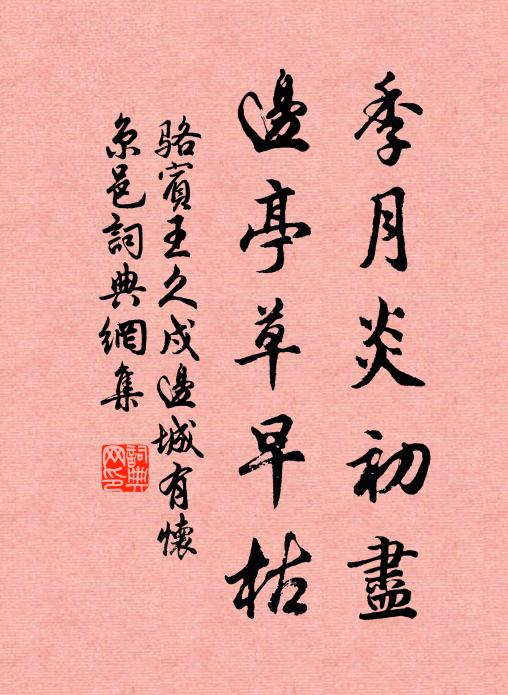 季月炎初盡
邊亭草早枯
駱賓王久戍邊城有懷
京邑詞典網集
詞典网印